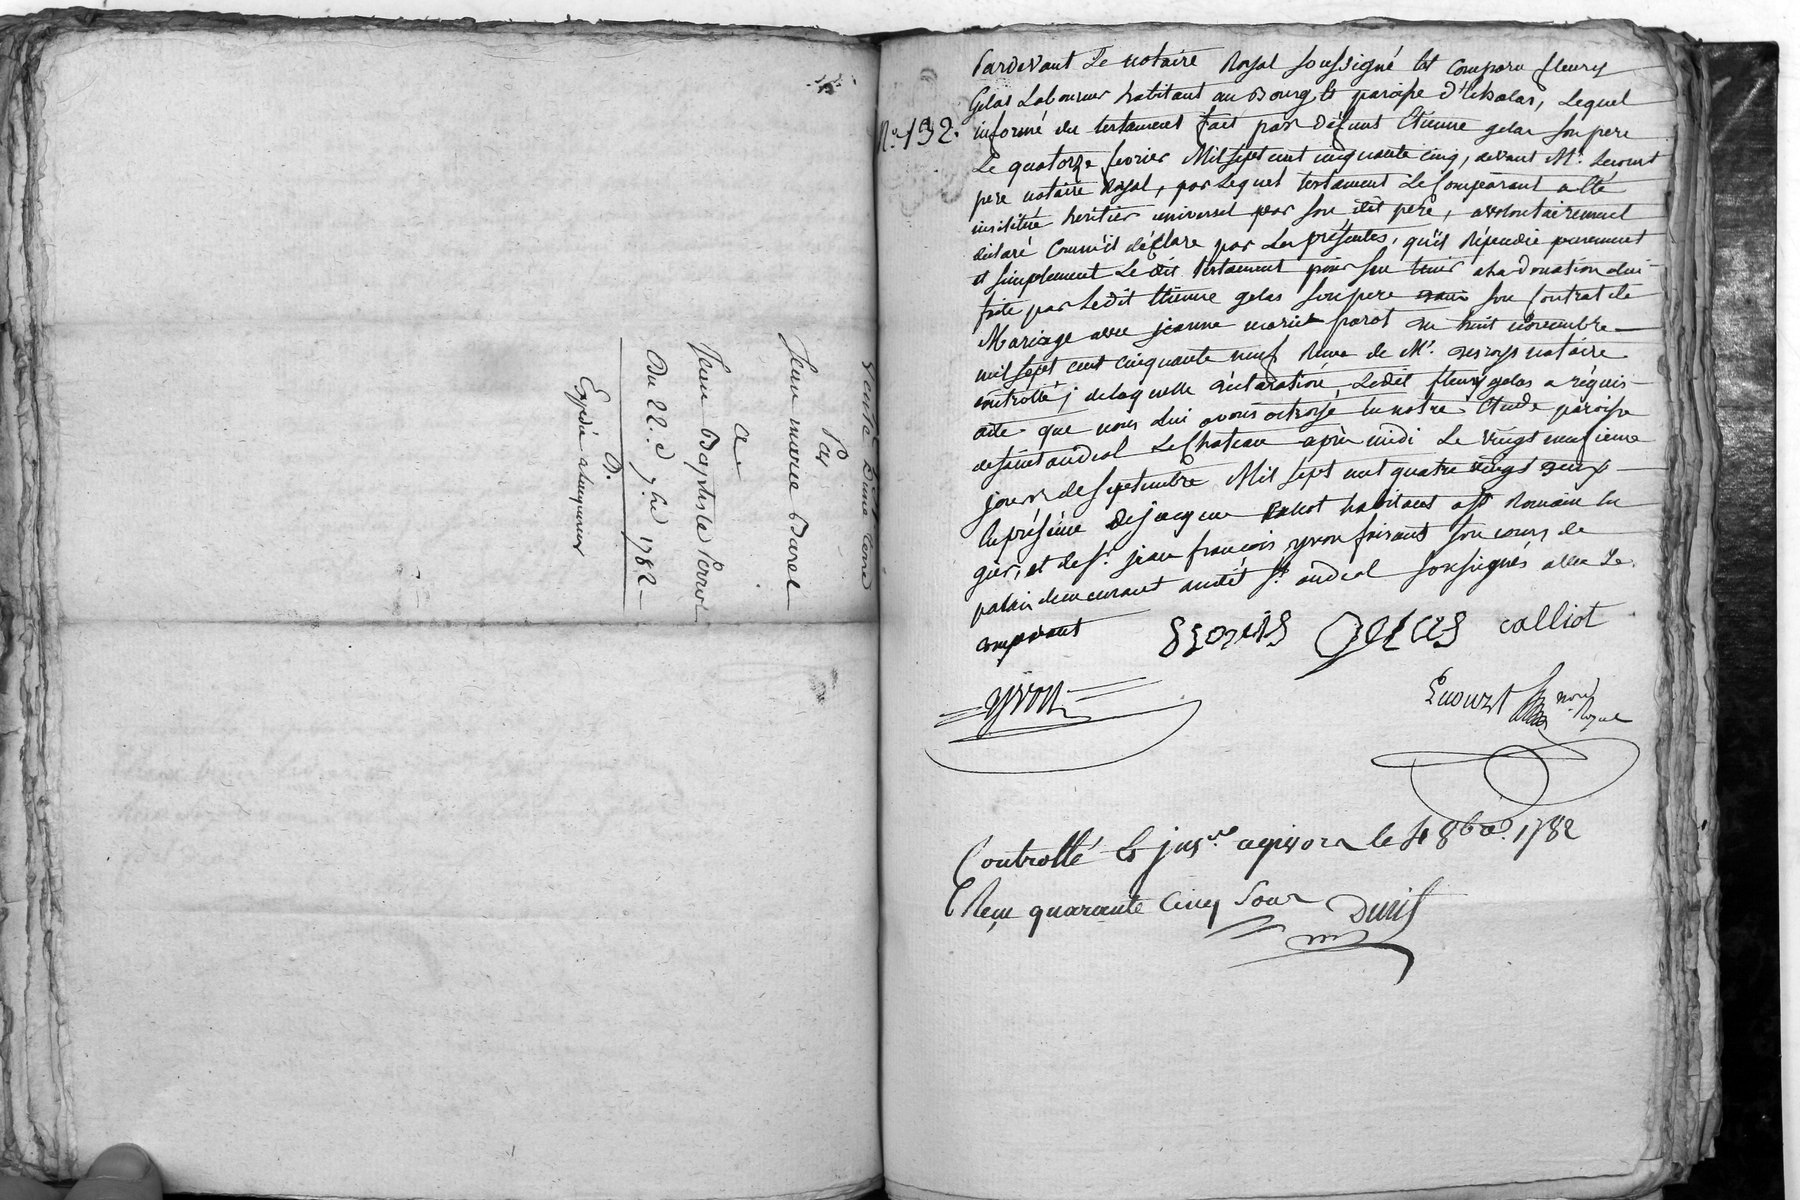 vente D'une terre
Par
Jean marie Barel
a
Jean Baptiste Perour
Du 22. d 7bre 1782
D.
Expédié a lacquereur
N.° 132.
Pardevant Le notaire Royal soussigné Est comparu fleury
Gelas Laboureur habitant au Bourg & paroisse d'Echalas, Lequel
informé du testament fait par défunt Etienne gelas son pere
Le quatorze fevrier Mil sept cent cinquante cinq, devant M.e
pere notaire Royal, par Lequel testament Le Comparant a Eté
institué heritier universel par son dit pere, a volontairement
déclaré Comm'il déclare par Les présentes, qu'il Répudie purement
et simplement Le dit testament pour s'en tenir a la donation a lui
faite par Ledit Etienne gelas son pere dans son Contrat de
Mariage avec jeanne marie parot du huit novembre
mil sept cent cinquante neuf Reçu de M.e notaire
controllé ; de laquelle déclaration, Ledit fleury gelas a réquis
acte que nous Lui avons octroyé En notre Etude paroisse
de saint andeol Le Chateau après midi Le vingt neufieme
jour de septembre Mil sept cent quatre vingt deux
En présence de jacque habitant a S.t Romain En
gier, et de S.r jean francois yvon faisant son cours de
palais demeurant audit S.t andeol soussignés avec Le
comparant
fleuris Gelas calliot
yvon
Lucourt not. Royal
Controllé & a givors le 4 8bre. 1782
Reçu quarante Cinq Sous